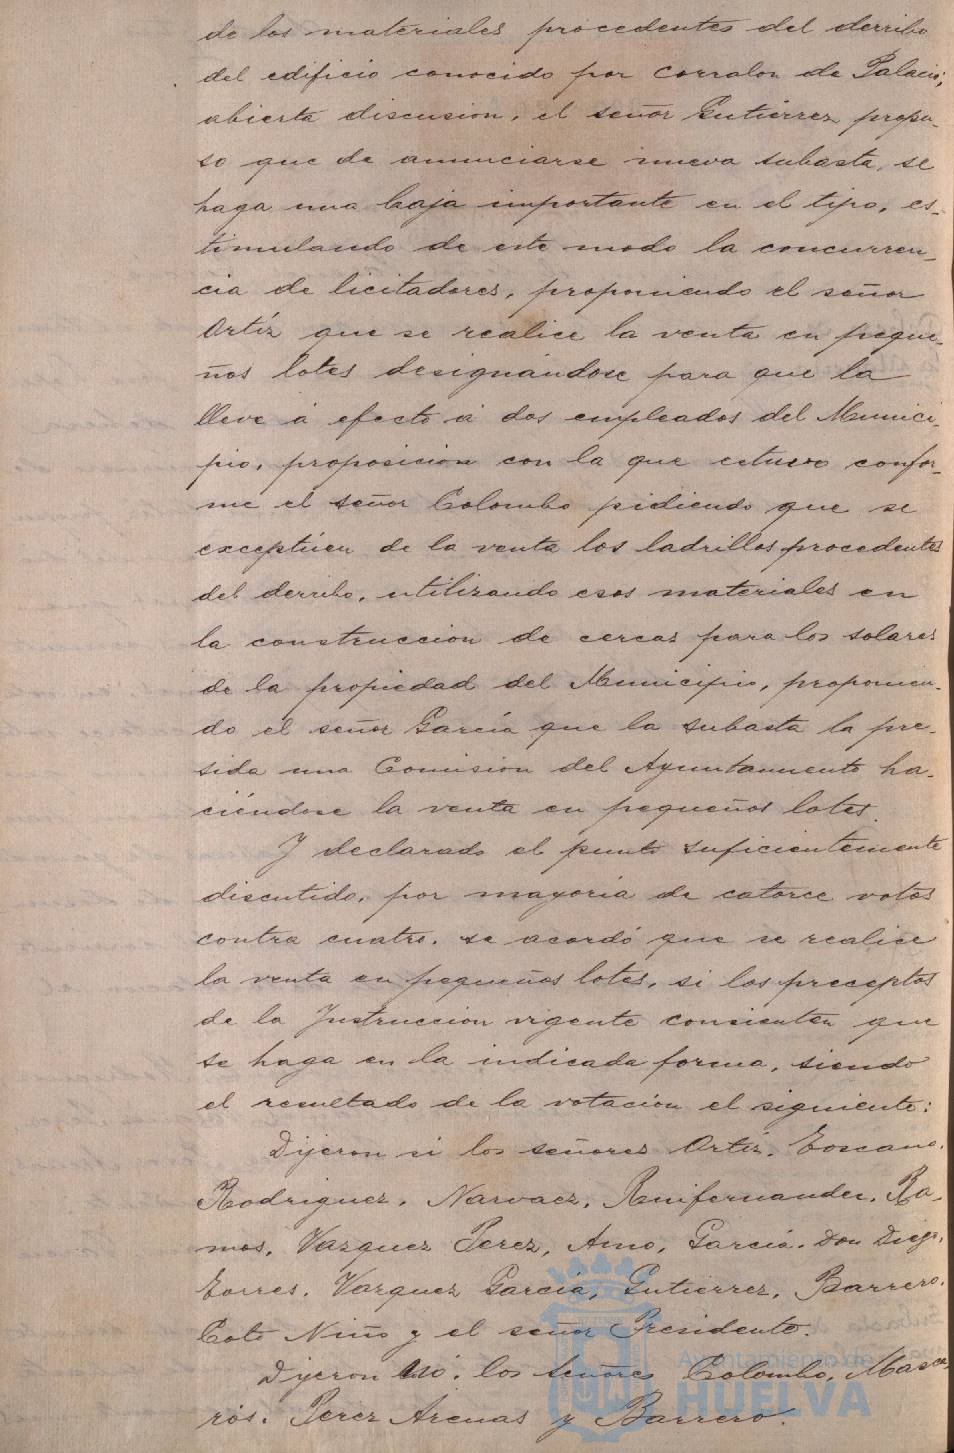 de los materiales procedentes del derribo
del edificio conocido por corralon de Palacio;
abierta discusion, el señor Gutiérrez propu-
so que de anunciarse nueva subasta, se
haga una baja importante en el tipo, es-
timulando de este modo la concurren-
cia de licitadores, proponiendo el señor
Ortíz que se realice la venta en peque-
ños lotes designándose para que la
lleve á efecto á dos empleados del Munici-
pio, proposicion con la que estuvo confor-
me el señor Colombo pidiendo que se
exceptúen de la venta los ladrillos procedentes
del derribo, utilizando esos materiales en
la construccion de cercas para los solares
de la propiedad del Municipio, proponien-
do el señor García que la subasta la pre-
sida una Comision del Ayuntamiento ha-
ciéndose la venta en pequeños lotes.
Y declarado el punto suficientemente
discutido, por mayoría de catorce votos
contra cuatro, se acordó que se realice
la venta en pequeños lotes, si los preceptos
de la Instruccion vigente consienten que
se haga en la indicada forma, siendo
el resultado de la votación el siguiente:
Dijeron si los señores Ortíz, Toscano,
Rodriguez, Narvaez, Ruifernandez, Ra-
mos, Vazquez Perez, Amo, García, Don Diego,
Torres, Vazquez García, Gutierrez, Barrero,
Coto Niño y el señor Presidente.
Dijeron nó, los señores Colombo, Masca-
rós, Perez Arenas y Barrero.
Ayuntamiento de
HUELVA